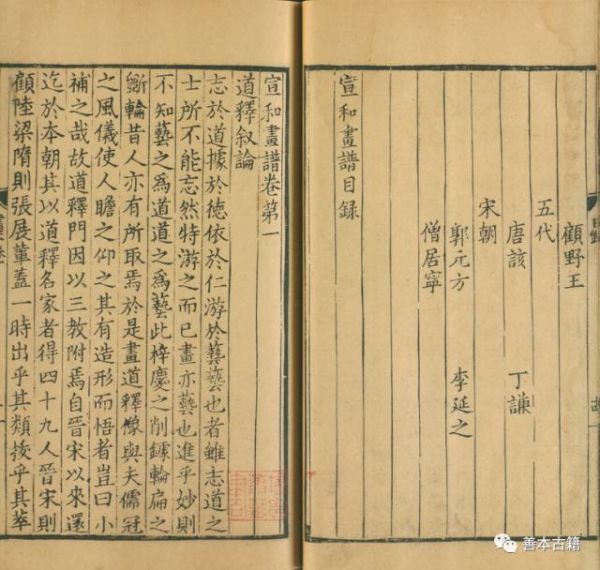 顧野王
五代
唐該 丁謙
宋朝
郭元方 李延之
僧居寧
宣和畫譜目録
宣和畫譜卷第一
道釋叙論
志於道據於德依於仁游於藝藝也者雖志道之
士所不能忘然特游之而已畫亦藝也進乎妙則
不知藝之為道道之為藝此梓慶之削鐻輪扁之
斲輪昔人亦有所取焉於是畫道釋像與夫儒冠
之風儀使人瞻之仰之其有造形而悟者豈曰小
補之哉故道釋門因以三教附焉自晉宋以來還
迄於本朝其以道釋名家者得四十九人晉宋則
顧陸梁隋則張展董蓋一時出乎其類拔乎其萃
善本古籍